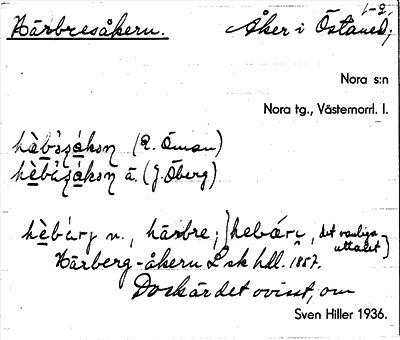 Härbresåkern. Åker i Östaned; 1-2,
Nora s:n
Nora tg., Västernorrl. l.
(A. Öman)
ä. (J. Öberg)
n., härbre; det vanliga
uttalet
Härberg-åkern L sk hdl. 1857.
Dock är det ovisst, om
Sven Hiller 1936.